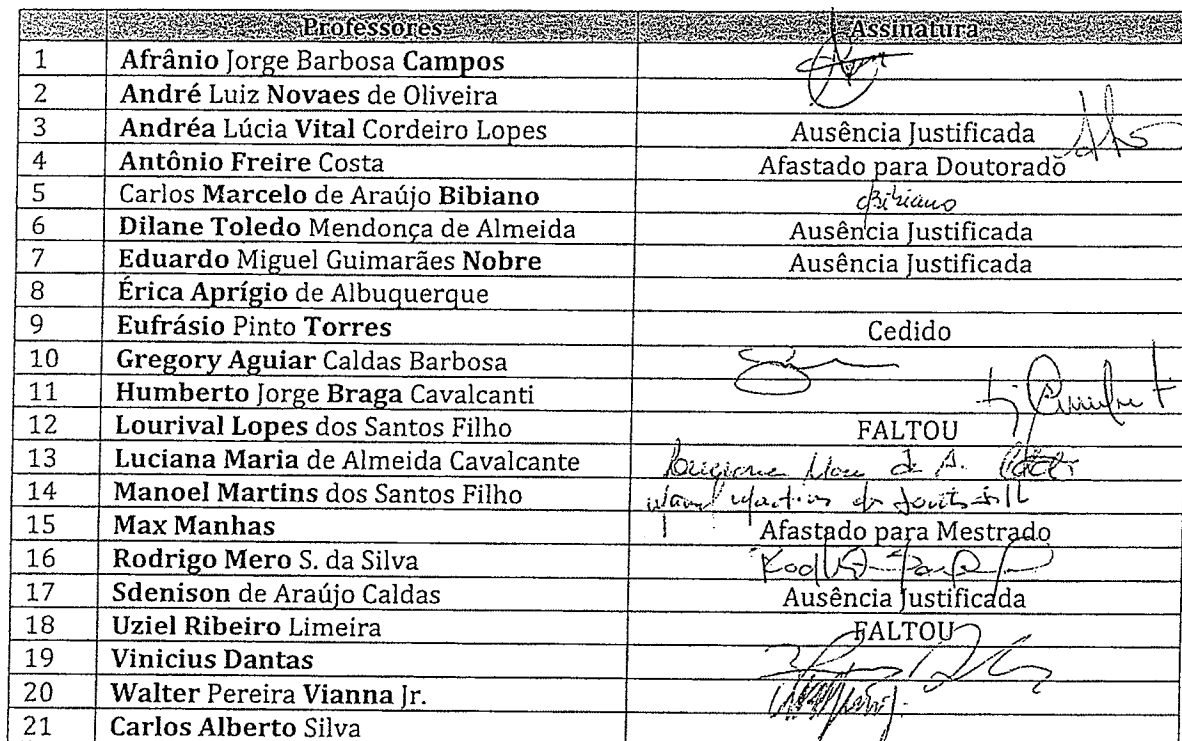 Professores Assinatura
1 Afrânio Jorge Barbosa Campos
2 André Luiz Novaes de Oliveira
3 Andréa Lúcia Vital Cordeiro Lopes Ausência Justificada
4 Antônio Freire Costa Afastado para Doutorado
5 Carlos Marcelo de Araújo Bibiano Bibiano
6 Dilane Toledo Mendonça de Almeida Ausência Justificada
7 Eduardo Miguel Guimarães Nobre Ausência Justificada
8 Érica Aprígio de Albuquerque
9 Eufrásio Pinto Torres Cedido
10 Gregory Aguiar Caldas Barbosa
11 Humberto Jorge Braga Cavalcanti
12 Lourival Lopes dos Santos Filho FALTOU
13 Luciana Maria de Almeida Cavalcante
14 Manoel Martins dos Santos Filho
15 Max Manhas Afastado para Mestrado
16 Rodrigo Mero S. da Silva
17 Sdenison de Araújo Caldas Ausência Justificada
18 Uziel Ribeiro Limeira FALTOU
19 Vinicius Dantas
20 Walter Pereira Vianna Jr.
21 Carlos Alberto Silva